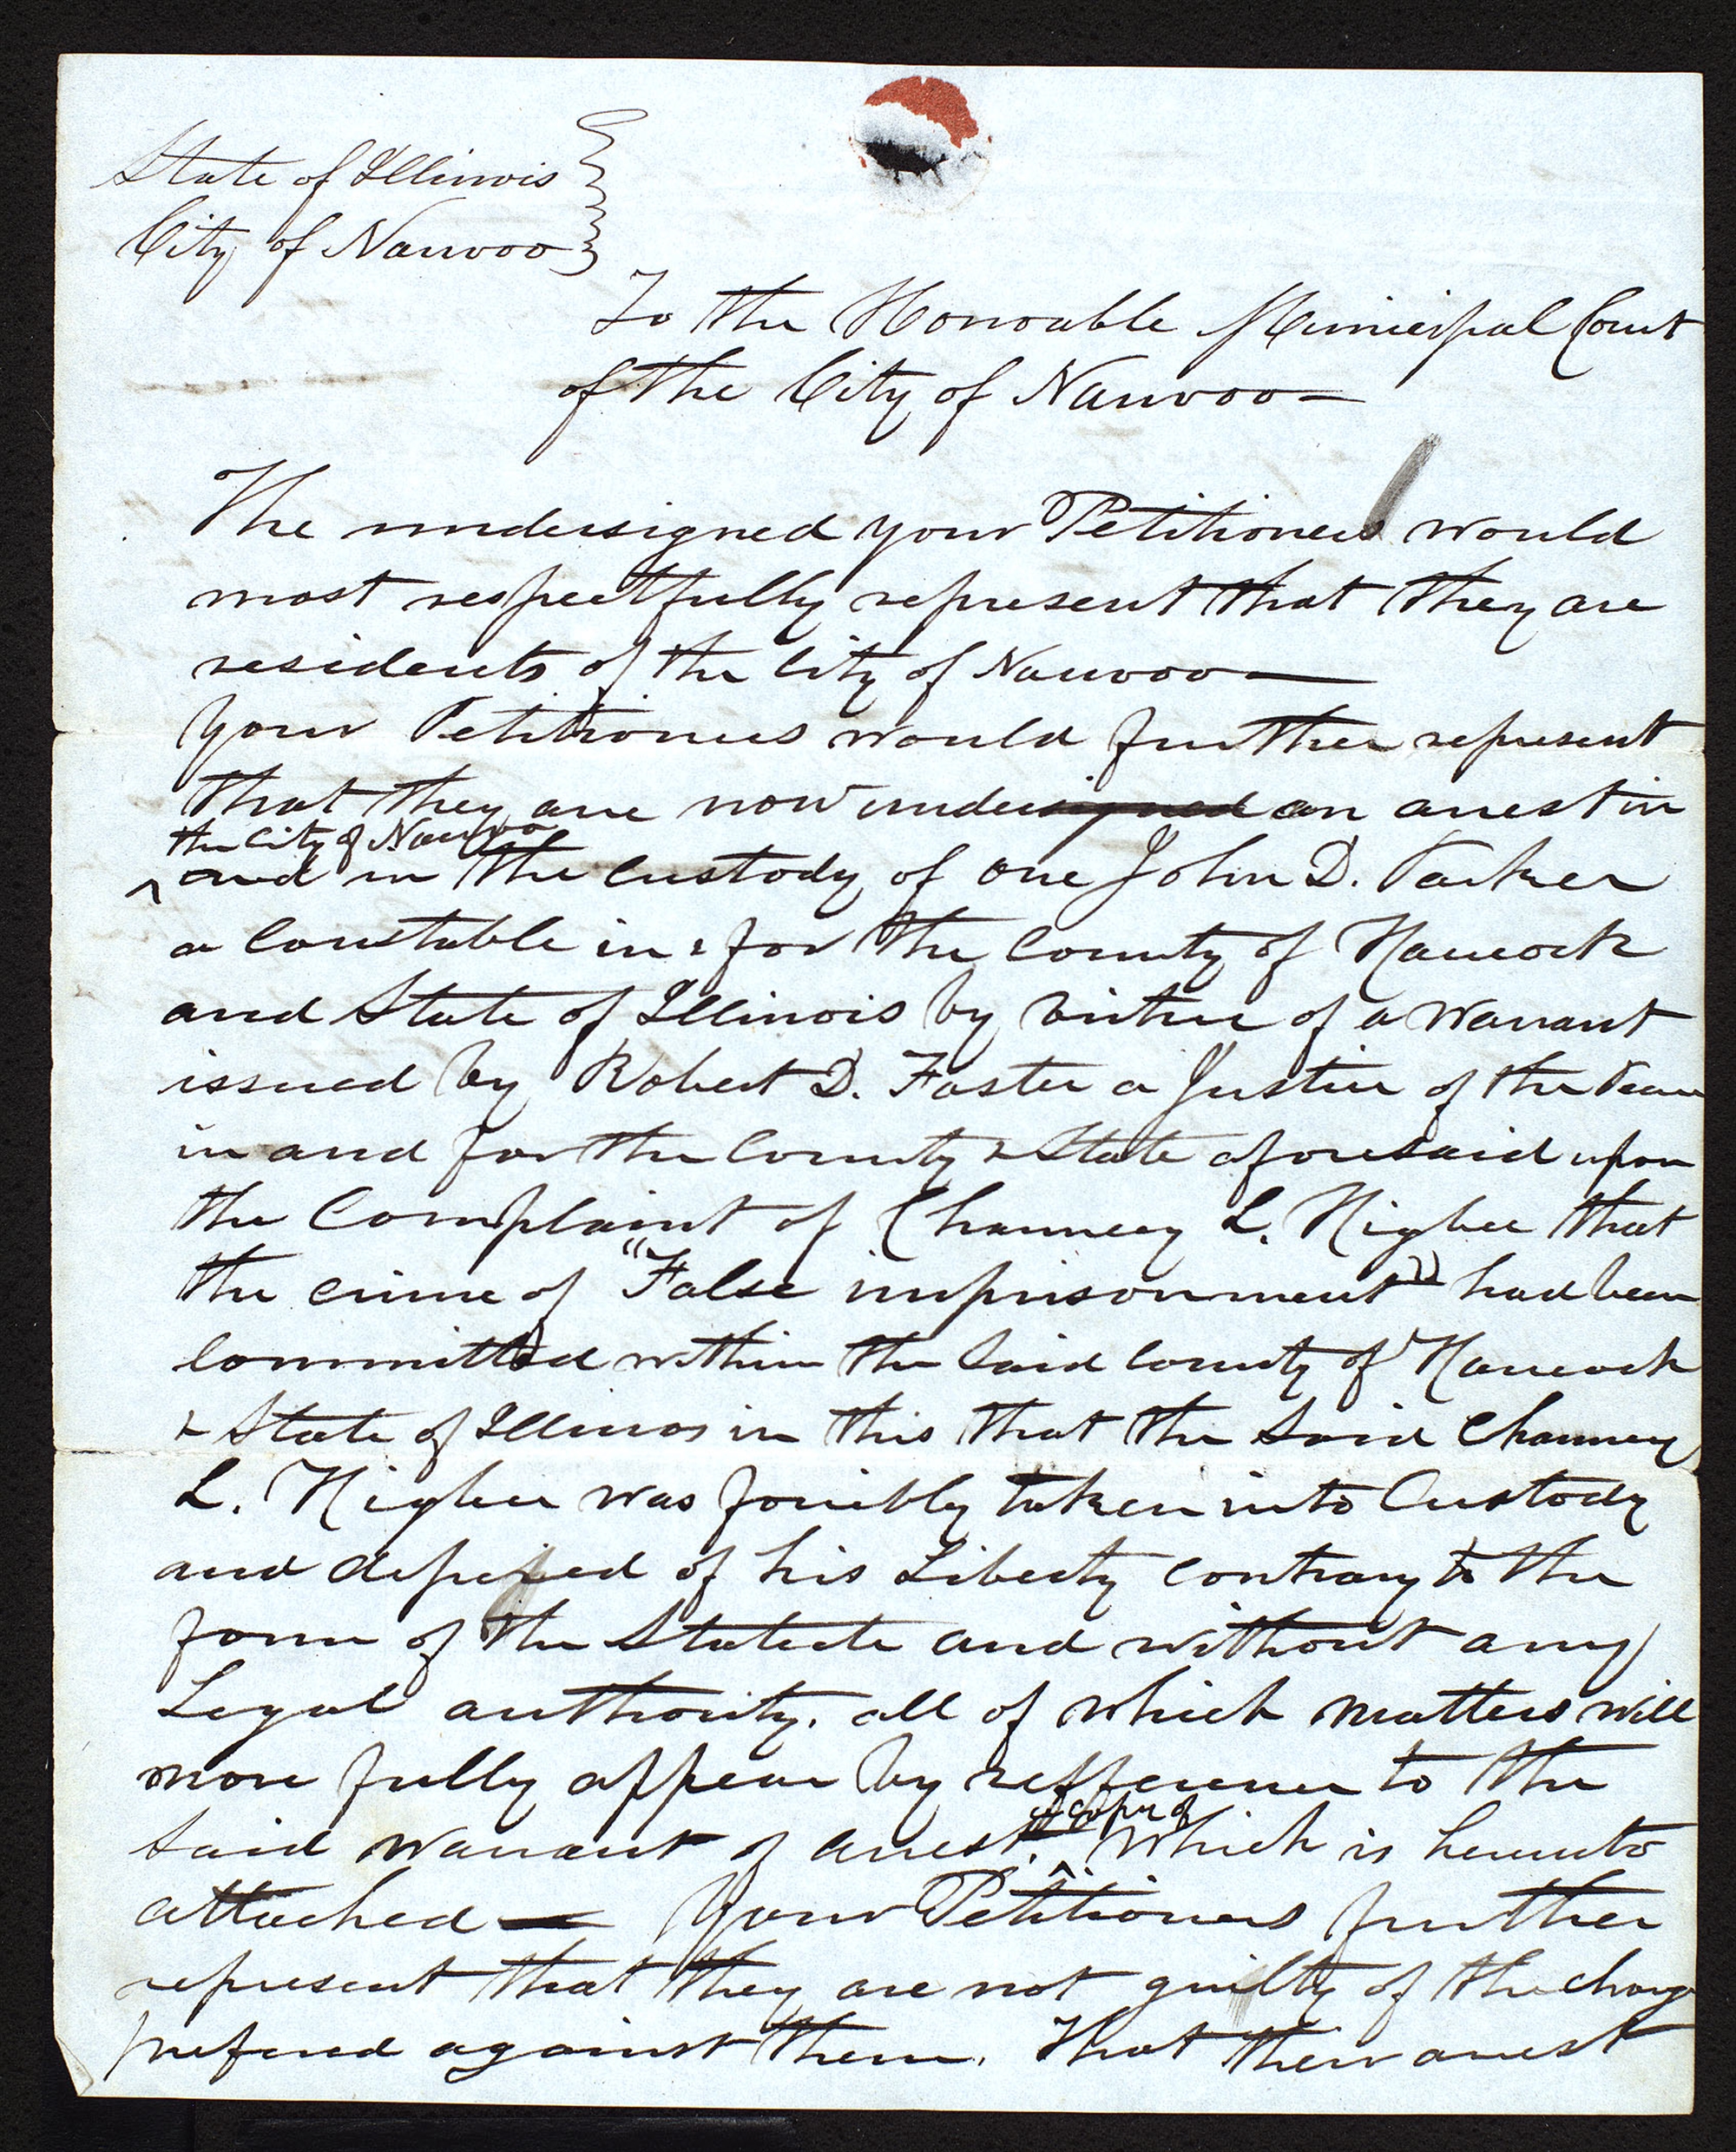 State of Illinois
City of Nauvoo
To the Honorable Municipal Court
of the City of Nauvoo—
The undersigned your Petitioners would
most respectfully represent that they are
residents of the City of Nauvoo—
Your Petitioners would further represent
that they are now undersigned an arrest in
the City of Nauvoo
^ and in the custody of one John D. Parker
a Constable in & for the County of Hancock
and State of Illinois by virtue of a Warrant
issued by Robert D. Foster a Justice of the Peace
in and for the County & State aforesaid upon
the Complaint of Chauncey L. Higbee that
the crime of "False imprisonment" had been
committed within the said County of Hancock
& State of Illinos in this that the said Chauncey
L. Higbee was forcibly taken into Custody
and deprived of his Liberty contrary to the
form of the Statute and without any
Legal authority. all of which matters will
more fully appear by refference to the
a copy of
said Warrant of arrest. ^ Which is hereunto
attached — Your Petitioners further
represent that they are not guilty of the charge
prefered against them. That their arrest